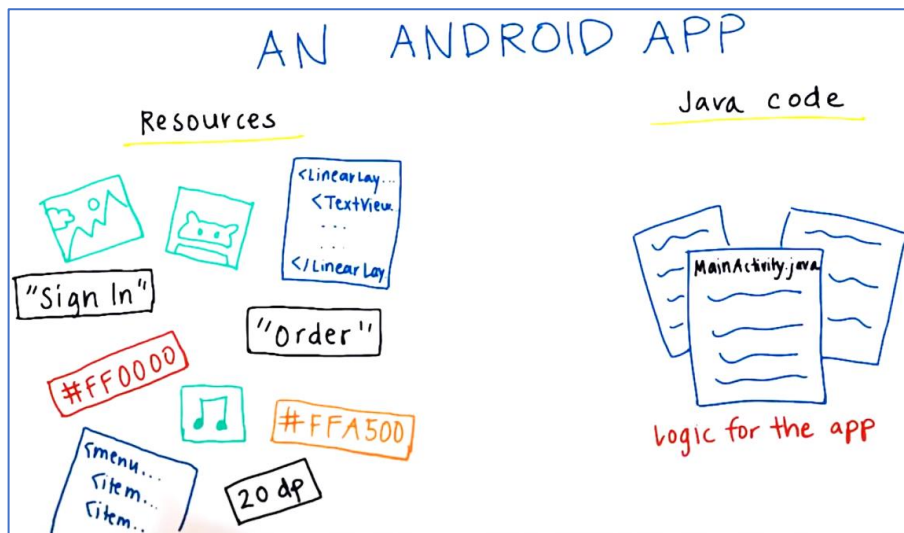 AN ANDROID APP
Resources
Java code
<LinearLay...
<TextView
...
...
</LinearLay
"Sign In"
"Order"
#FF0000
#FFA500
<menu...
<item...
<item...
20 dp
MainActivity.java
Logic for the app